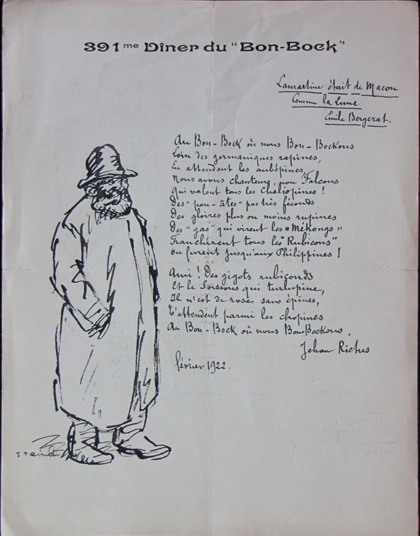 391me Dîner du "Bon-Bock"
Lamartine était de Macon
Comme la Lune
Emile Bergerat.
Au Bon-Bock où nous Bon-Bockons
Loin des germaniques rapines,
En attendant les aubépines,
Nous avons chanteurs pour Falcons
Qui valent tous les Chaliapines !
Des "pou-ètes" pas très féconds
Des gloires plus ou moins rupines
Des "gas" qui virent les "Mékongs"
Franchirent tous les "Rubicons"
Ou furent jusqu'aux Philippines !
Ami ! Des gigots rubiconds
Et le Soissons qui turlupine,
Il n'est de roses sans épines,
T'attendent parmi les chopines
Au Bon-Bock où nous Bon-Bockons.
Jehan Rictus
février 1922.